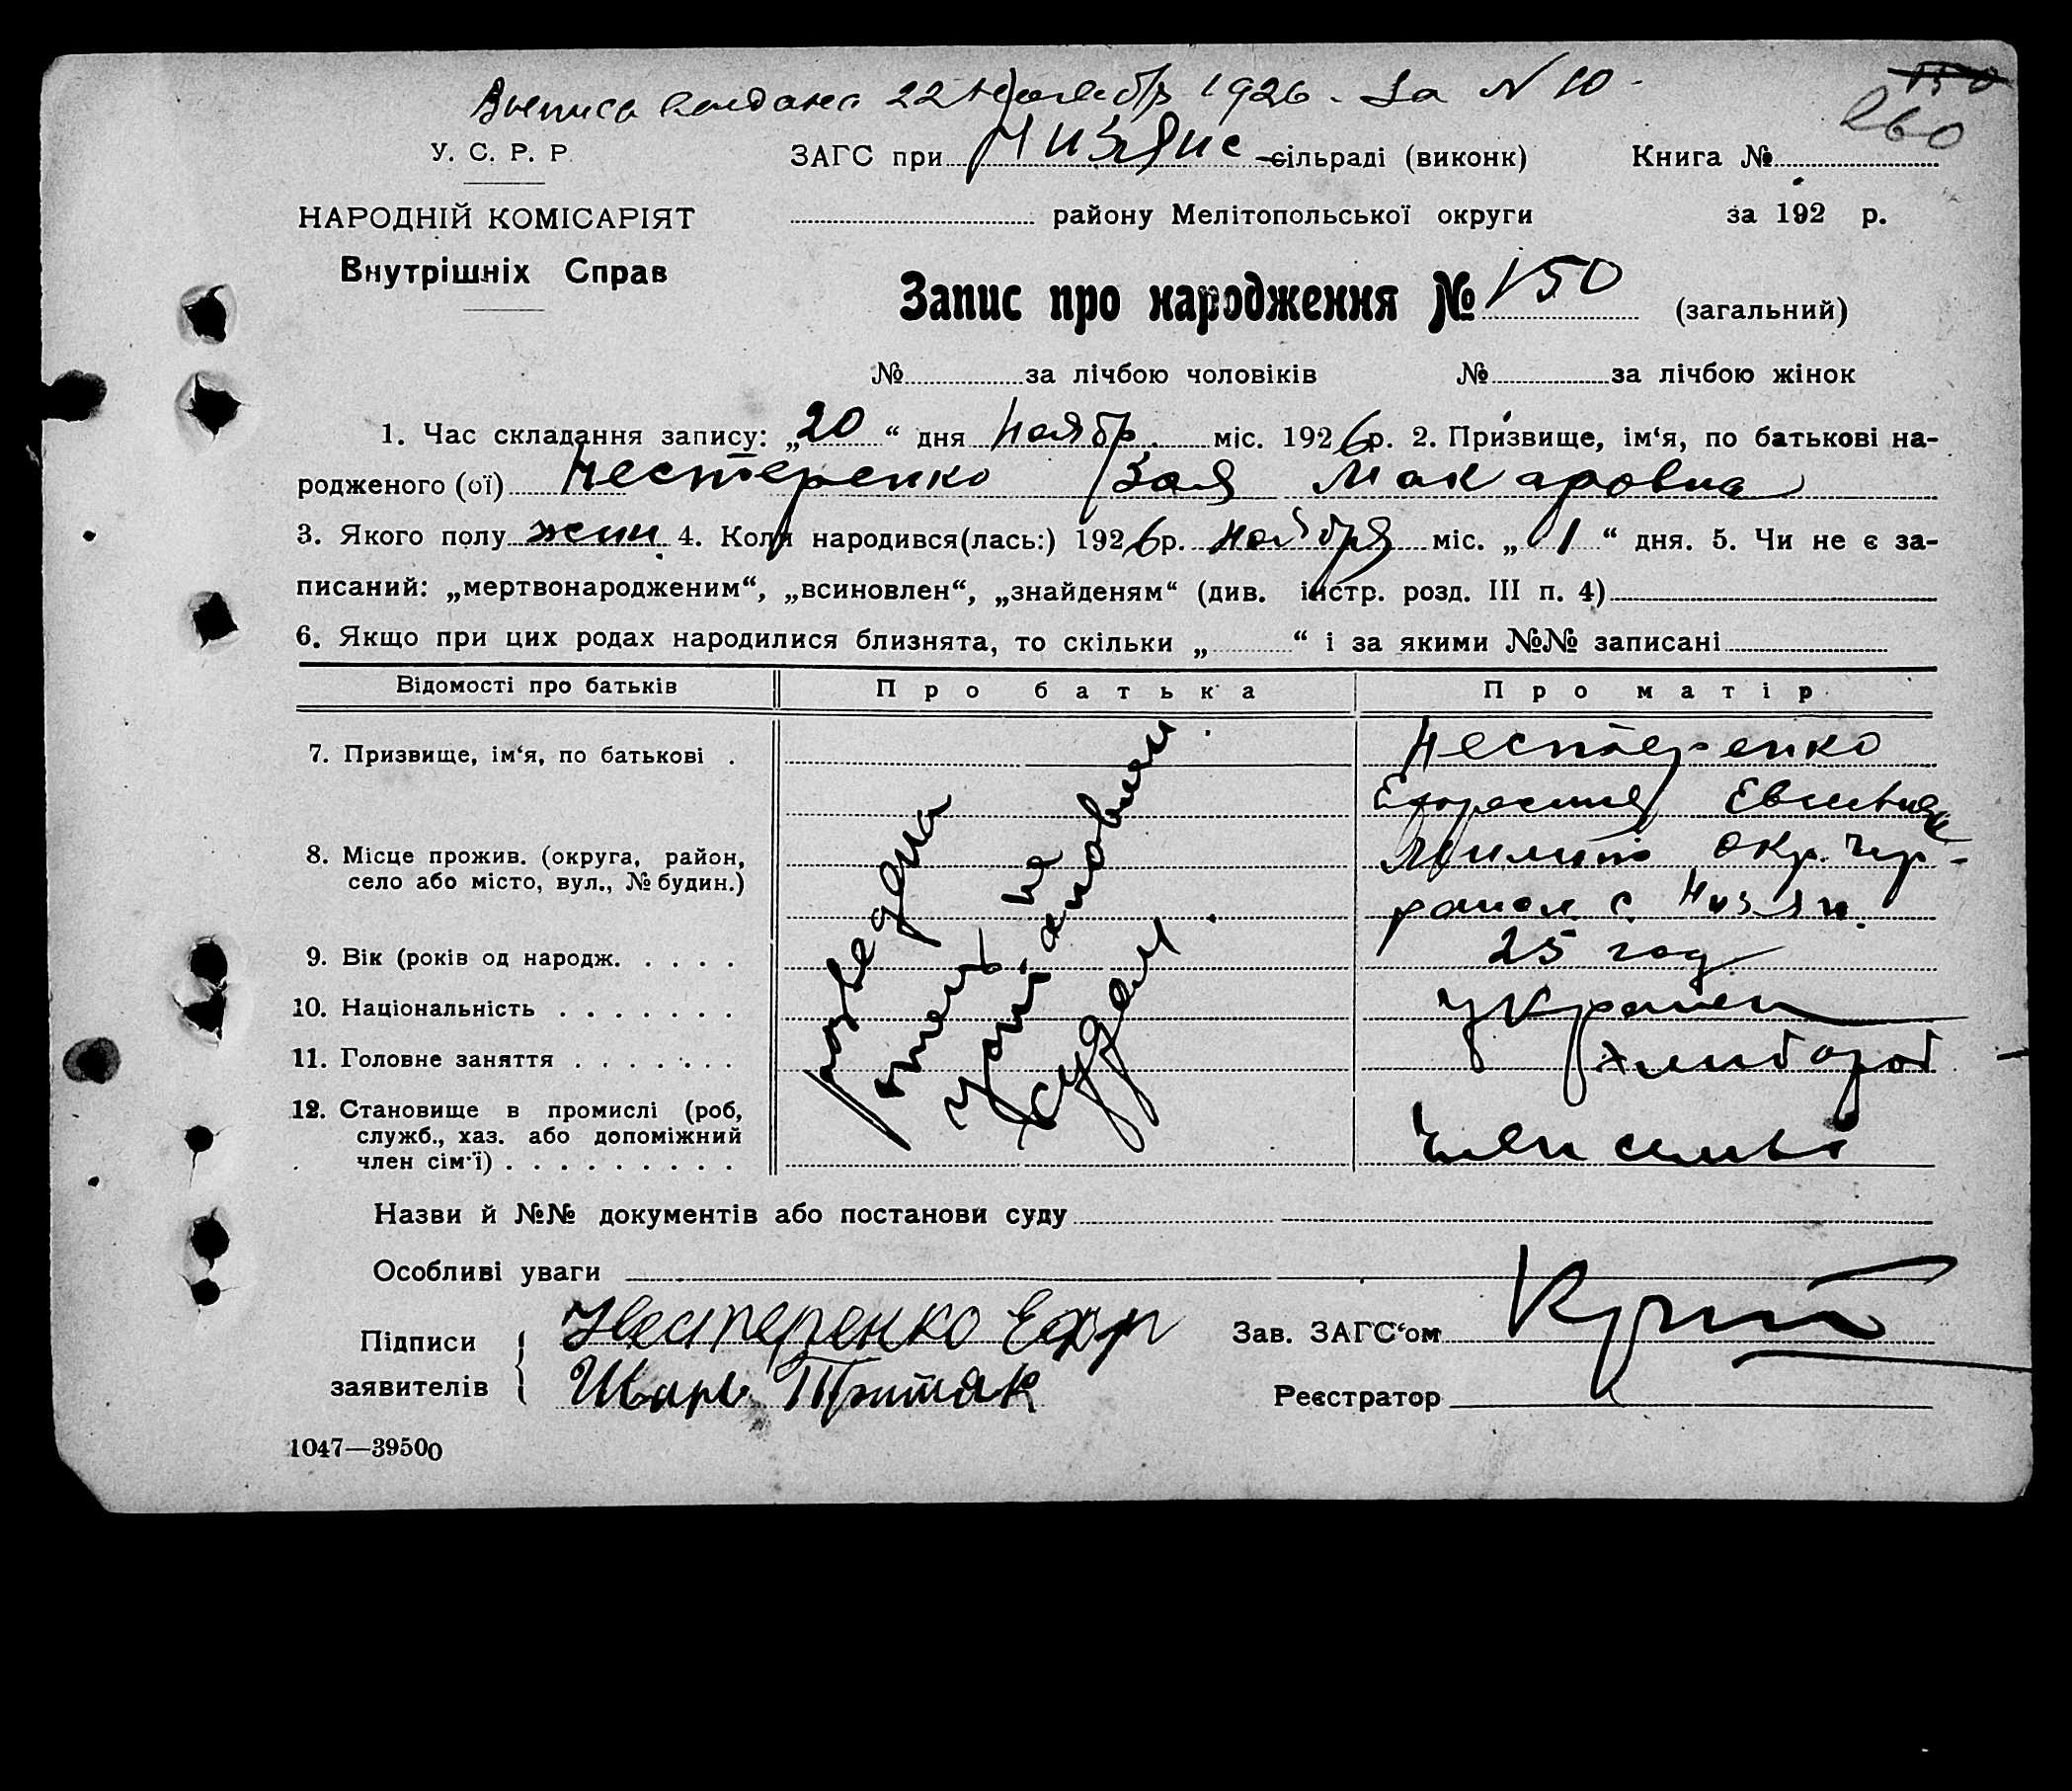 Выписа выдана 22 ноября 1926. За N 10
150
260
У. С. Р. Р.
ЗАГС при Низяние сільраді (виконк) Книга №
НАРОДНІЙ КОМІСАРІЯТ
району Мелітопольської округи за 192 р.
Внутрішніх Справ
Запис про народження № 150 (загальний)
№ за лічбою чоловіків № за лічбою жінок
1. Час складання запису: „20“ дня Ноябр. міс. 1926р. 2. Призвище, ім‘я, по батькові на-
родженого (ої) Нестеренко Зоя Макаровна
3. Якого полу жен. 4. Коли народився(лась:) 1926р. ноября міс. „1“ дня. 5. Чи не є за-
писаний: „мертвонародженим“, „всиновлен“, „знайденям“ (див. інстр. розд. III п. 4)
6. Якщо при цих родах народилися близнята, то скільки „ “ і за якими №№ записані
Відомості про батьків Про батька Про матір
7. Призвище, ім‘я, по батькові . Нестеренко
8. Місце прожив. (округа, район, окр.
село або місто, вул., № будин.) район с. Низян.
9. Вік (років од народж. . . . . 25 год
10. Національність . . . . . . . Украин
11. Головне заняття . . . . . . . хлибороб
12. Становище в промислі (роб,
служб., хаз. або допоміжний Член семьи
член сім‘ї) . . . . . . . . .
разведена
отець не
установлен
судом
Назви й №№ документів або постанови суду
Особливі уваги
Підписи Нестеренко Ефр Зав. ЗАГС‘ом
заявителів Реєстратор
1047—39500